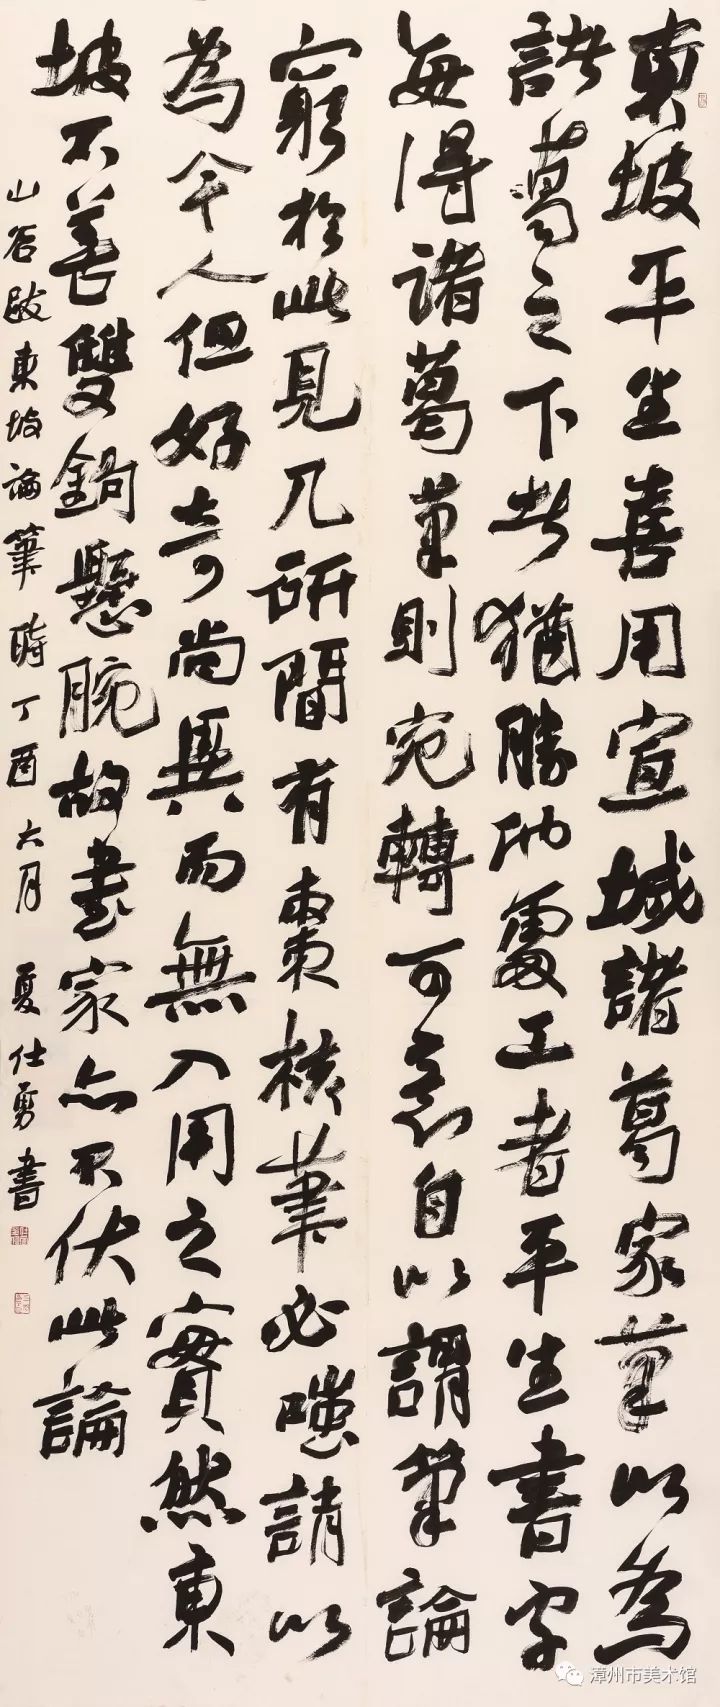 東坡平生喜用宣城諸葛家筆以為
諸葛之下者猶勝他處工者平生書字
每得諸葛筆則宛轉可意自以謂筆論
窮於此見几研間有棗核筆必嗤誚以
為今人但好奇尚異而無入用之實然東
坡不善雙鉤懸腕故書家亦不伏此論
山谷跋東坡論筆時丁酉六月 夏仕勇書
漳州市美术馆